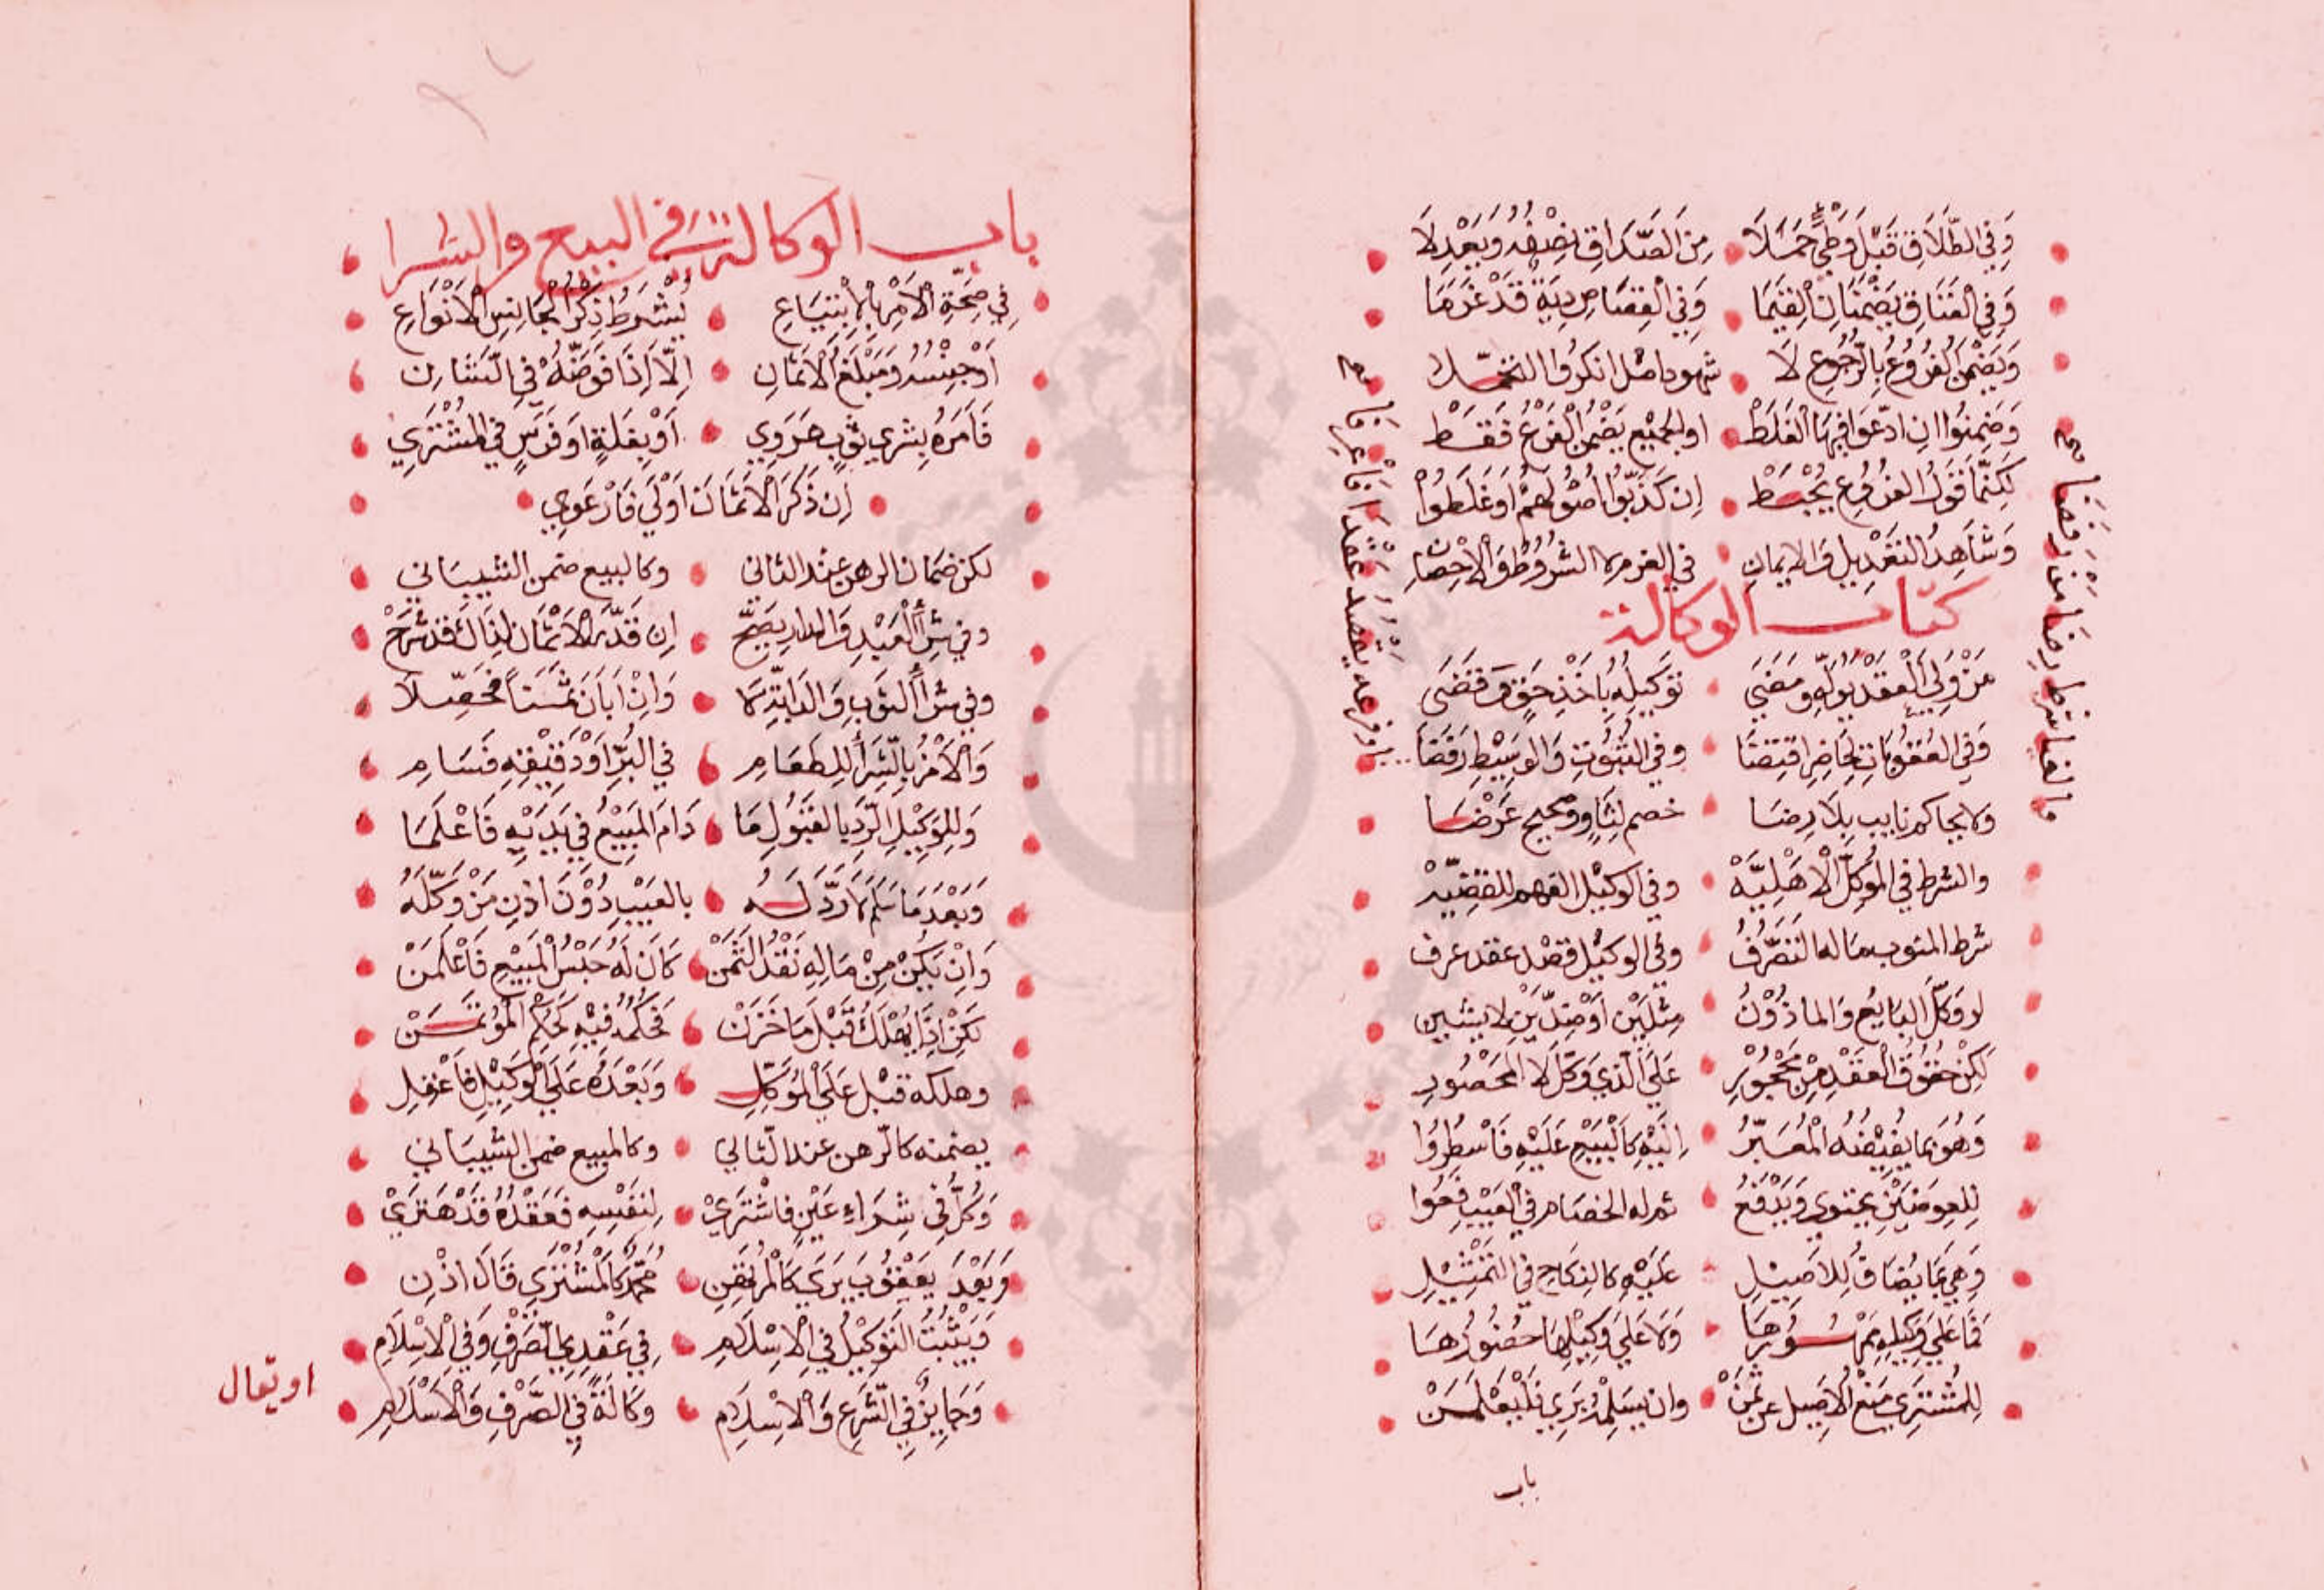 وَفِي الطَّلَاقِ قَبْلَ وَطْيٍ حَمَلَا مِنَ الصَّدَاقِ نِصْفُهُ وَبَعْدِ لَا
وَفِي الْعَتَاقِ يَضْمَنَانِ الْقِيَمَا وَفِي الْقِصَاصِ دِيَةً قَدْ غَرَمَا
وَيَضْمَنُ الْفُرُوعُ بِالرُّجُوعِ لَا شهود اصل انكروا التحملا
وَضَمِنُوا اِنِ ادَّعَوا فِيهَا الْغَلَطْ او الجميع يَضْمَنُ الْفَرْعُ فَقَطْ
لَكِنَّمَا قَوْلُ الفُرُوعِ يُحْبَطْ اِن كَذَّبُوا اُصُولَهُمْ اَوْ غَلَّطُوا
وَشَاهِدُ التَعْدِيلِ وَالايمانِ في الغرم لا الشُرُوطُ وَالاِحْصَانِ
كتاب الوكالة
مَنْ وَلِيَ الْعَقْدَ يُوَلِّهِ وَمَضَى تَوْكِيلُهُ بِاَخْذِ حَقٍّ وَقَضَى
وَفِي العُقُوبَاتِ لِحَاضِرِ اقْتِضَا وَفي الثُبُوتِ وَالوَسِيْطِ رَفَضَا
ولا يحاكم نايب بِلَا رِضَا خصم لِثَاوٍ وصحيح عَرَضَا
والشرط في المُوَكِّلْ الْاَهْلِيَّهْ وفي الوكيْل الفهم للقضيّهْ
شرط المنوب ماله التَصَرُّفُ وفي الوكيْل قصْد عقد عرف
لو وَكَّلَ البَايعُ وَالماذُوْنُ مِثْلَيْنِ اَوْ ضِدَّيْنِ لا يشين
لَكِنْ حُقُوقُ الْعَقْدِ مِنْ مَحْجُوْرِ عَلَى الَّذِي وَكَّلَ لَا المَحْصُورِ
وَهُوَ بما يُضِيْفُهُ الْمُعَبِّرُ اِلَيْهِ كَالْبَيْعِ عَلَيْهِ فَاسْطُرُوا
لِلعِوَضَيْنِ يحتوي وَيَدْفَعُ ثم له الخصَام في الْعَيْبِ فَعُوا
وَهِيَ بمَا يُضَافُ لِلاَصِيْلِ عَلَيْهِ كالنِكَاحِ في التَمْثِيْلِ
فَمَا عَلَى وَكِيلِهِ مَهْرُهَا وَلَا عَلَى وَكِيْلِهَا حُضُورُهَا
لِلمُشْتَرِي مَنْعُ الاَصِيل عن ثَمَنْ وان يسَلِّمْهُ بَرِي فَلْيُعْلَمَنْ
باب
باب الوكالة في البيع والشرا
فِي صِحَّةِ الْاَمْرِ بِالْاِبْتِيَاعِ يُشْرَطُ ذِكْرُ الْجَانِسِ الْاَنْوَاعِ
اَوْ جِنْسُهُ وَمَبْلَغُ الْاَثْمَانِ اِلَّا اِذَا فَوَّضَهُ فِي الشَانِ
فَاَمَرهُ بِشري ثَوْبٍ هَرَوِي اَوْ بغلَةٍ اَوْ فَرَسٍ في المُشْتَرِي
اِن ذَكَرَ الْاَثمَانَ اَوْلَى فَارْعَوِي
لكن ضمَان الرهن عند الثاني وكالبيع ضمن الشيباني
وفي شِرَا الْعَبْدِ وَالدار يَصِحّْ اِن قَدَّرَ الْاَثْمَانَ لِذَاكَ قَدْ شَرَحْ
وفي شرَا الثَوبِ وَالدَابَّةِ لَا وَاِنْ اَبَانَ ثَمَناً فحَصِّلَا
وَالْاَمْرُ بِالشِّرَا لِلطَعَامِ في البُرِّ اَوْ دَقِيْقِهِ فَسَامِ
وَلِلوَكِيْلِ الرَّدُ بالعَيْبِ لمَا دَامَ المَبِيْعُ فِي يَدَيْهِ فَاعْلَمَا
وَبَعْدَ مَا سَلَّمَ لَا رَدَّ لَهُ بالعَيْبِ دُوْنَ اذنِ مَنْ وَكَّلَهُ
وَاِنْ يَكُنْ مِنْ مَالِهِ نَقْدُ الثَّمَنْ كَانَ لَهُ حَبْسُ الْمَبِيْعِ فَاعْلَمَنْ
لَكِنْ اِذَا يُهْلَكُ قَبْلَ مَا خَزَنْ فَحُكْمُهُ فيْهِ كَحُكْمِ المُؤْتَمَنْ
وهلكه قبْل عَلَى الْمُوَكِّلِ وَبَعْدَهُ عَلَى الْوَكِيْلِ فاعْقِلِ
يضمنه كالرهن عند الثاني وكالمبيع ضمن الشيبَاني
وَكُلٌّ فِي شِرَاءِ عَيْنٍ فاشْتَرَى لِنَفْسِهِ فَعَقْدُهُ قَدْ هَتَرَيْ
وَبَعْدَ يَعْقُوبَ يَرَى كَالْمُرْتَهِنِ مُحَمَّدٌ كَالْمُشْتَرِي قَالَ اذْنِ
وَيَثْبُتُ التَوْكِيْلُ في الْاِسْلَامِ فِي عَقْدِيِ الصَّرْفِ وَفِي الْاِسْلَامِ
وَجَايِزٌ في الشَّرْعِ وَالْاِسْلَامِ وَكَالَةٌ فِي الصَّرْفِ وَالْاِسْلَامِ
او يقال